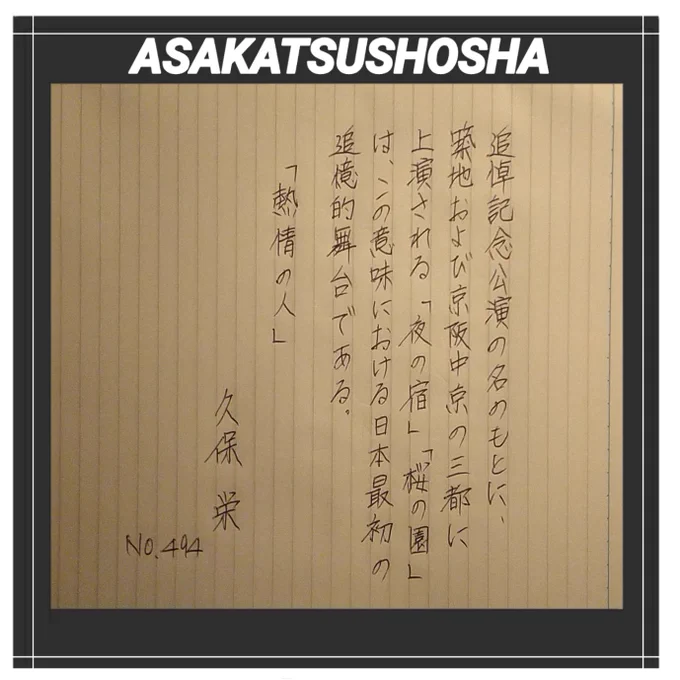 ASAKATSUSHOSHA
追悼記念公演の名のもとに、
築地および京阪中京の三都に
上演される「夜の宿」「桜の園」
は、この意味における日本最初の
追憶的舞台である。
「熱情の人」
久保 栄
No.494